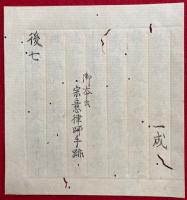 一成
御本云
宗意律師手跡
後七